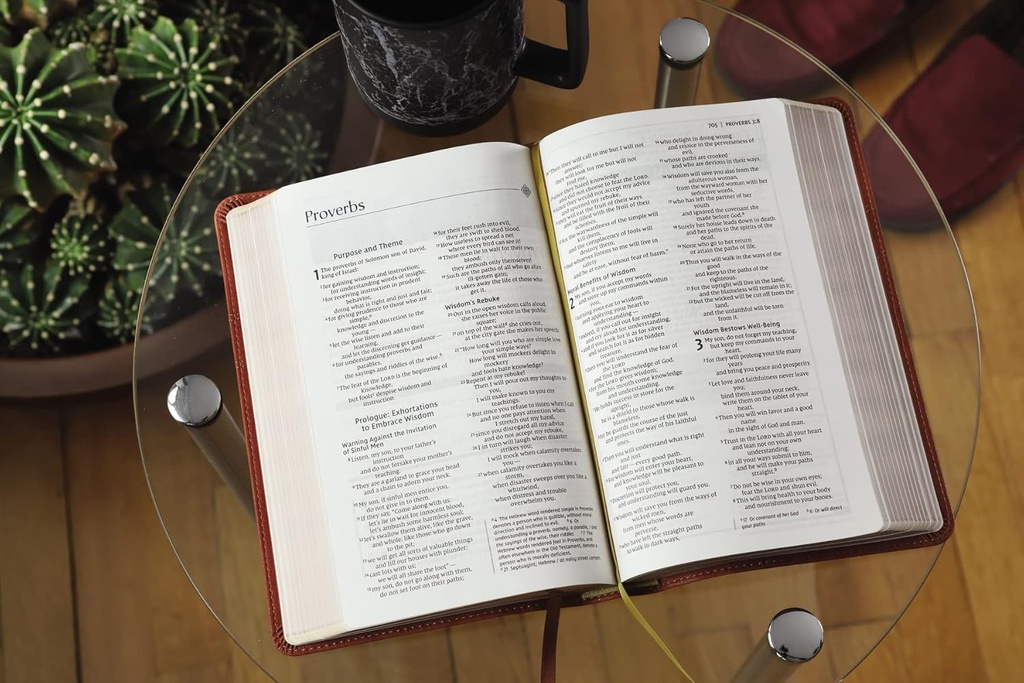 Proverbs
Purpose and Theme
1 The proverbs of Solomon son of David,
king of Israel:
2 for gaining wisdom and instruction;
for understanding words of insight;
3 for receiving instruction in prudent
behavior,
doing what is right and just and fair;
4 for giving prudence to those who are
simple,a
knowledge and discretion to the
young —
5 let the wise listen and add to their
learning,
and let the discerning get guidance —
6 for understanding proverbs and
parables,
the sayings and riddles of the wise.b
7 The fear of the LORD is the beginning of
knowledge,
but foolsc despise wisdom and
instruction.
Prologue: Exhortations
to Embrace Wisdom
Warning Against the Invitation
of Sinful Men
8 Listen, my son, to your father's
instruction
and do not forsake your mother's
teaching.
9 They are a garland to grace your head
and a chain to adorn your neck.
10 My son, if sinful men entice you,
do not give in to them.
11 If they say, "Come along with us;
let's lie in wait for innocent blood,
let's ambush some harmless soul;
12 let's swallow them alive, like the grave,
and whole, like those who go down
to the pit;
13 we will get all sorts of valuable things
and fill our houses with plunder;
14 cast lots with us;
we will all share the loot" —
15 my son, do not go along with them,
do not set foot on their paths;
16 for their feet rush into evil,
they are swift to shed blood.
17 How useless to spread a net
where every bird can see it!
18 These men lie in wait for their own
blood;
they ambush only themselves!
19 Such are the paths of all who go after
ill-gotten gain;
it takes away the life of those who
get it.
Wisdom's Rebuke
20 Out in the open wisdom calls aloud,
she raises her voice in the public
square;
21 on top of the walld she cries out,
at the city gate she makes her speech:
22 "How long will you who are simple love
your simple ways?
How long will mockers delight in
mockery
and fools hate knowledge?
23 Repent at my rebuke!
Then I will pour out my thoughts to
you,
I will make known to you my
teachings.
24 But since you refuse to listen when I call
and no one pays attention when
I stretch out my hand,
25 since you disregard all my advice
and do not accept my rebuke,
26 I in turn will laugh when disaster
strikes you;
I will mock when calamity overtakes
you —
27 when calamity overtakes you like a
storm,
when disaster sweeps over you like a
whirlwind,
when distress and trouble
overwhelm you.
a 4 The Hebrew word rendered simple in Proverbs
denotes a person who is gullible, without moral
direction and inclined to evil. b 6 Or
understanding a proverb, namely, a parable, / and
the sayings of the wise, their riddles c 7 The
Hebrew words rendered fool in Proverbs, and
often elsewhere in the Old Testament, denote a
person who is morally deficient.
d 21 Septuagint; Hebrew / at noisy street corners
705 | PROVERBS 3:8
28 "Then they will call to me but I will not
answer;
they will look for me but will not
find me,
29 since they hated knowledge
and did not choose to fear the LORD.
30 Since they would not accept my advice
and spurned my rebuke,
31 they will eat the fruit of their ways
and be filled with the fruit of their
schemes.
32 For the waywardness of the simple will
kill them,
and the complacency of fools will
destroy them;
33 but whoever listens to me will live in
safety
and be at ease, without fear of harm."
Moral Benefits of Wisdom
2 My son, if you accept my words
and store up my commands within
you,
2 turning your ear to wisdom
and applying your heart to
understanding —
3 indeed, if you call out for insight
and cry aloud for understanding,
4 and if you look for it as for silver
and search for it as for hidden
treasure,
5 then you will understand the fear of
the LORD
and find the knowledge of God.
6 For the LORD gives wisdom;
from his mouth come knowledge
and understanding.
7 He holds success in store for the
upright,
he is a shield to those whose walk is
blameless,
8 for he guards the course of the just
and protects the way of his faithful
ones.
9 Then you will understand what is right
and just
and fair — every good path.
10 For wisdom will enter your heart,
and knowledge will be pleasant to
your soul.
11 Discretion will protect you,
and understanding will guard you.
12 Wisdom will save you from the ways of
wicked men,
from men whose words are
perverse,
13 who have left the straight paths
to walk in dark ways,
14 who delight in doing wrong
and rejoice in the perverseness of
evil,
15 whose paths are crooked
and who are devious in their ways.
16 Wisdom will save you also from the
adulterous woman,
from the wayward woman with her
seductive words,
17 who has left the partner of her
youth
and ignored the covenant she
made before God.a
18 Surely her house leads down to death
and her paths to the spirits of the
dead.
19 None who go to her return
or attain the paths of life.
20 Thus you will walk in the ways of the
good
and keep to the paths of the
righteous.
21 For the upright will live in the land,
and the blameless will remain in it;
22 but the wicked will be cut off from the
land,
and the unfaithful will be torn
from it.
Wisdom Bestows Well-Being
3 My son, do not forget my teaching,
but keep my commands in your
heart,
2 for they will prolong your life many
years
and bring you peace and prosperity.
3 Let love and faithfulness never leave
you;
bind them around your neck,
write them on the tablet of your
heart.
4 Then you will win favor and a good
name
in the sight of God and man.
5 Trust in the LORD with all your heart
and lean not on your own
understanding;
6 in all your ways submit to him,
and he will make your paths
straight.b
7 Do not be wise in your own eyes;
fear the LORD and shun evil.
8 This will bring health to your body
and nourishment to your bones.
a 17 Or covenant of her God b 6 Or will direct
your paths